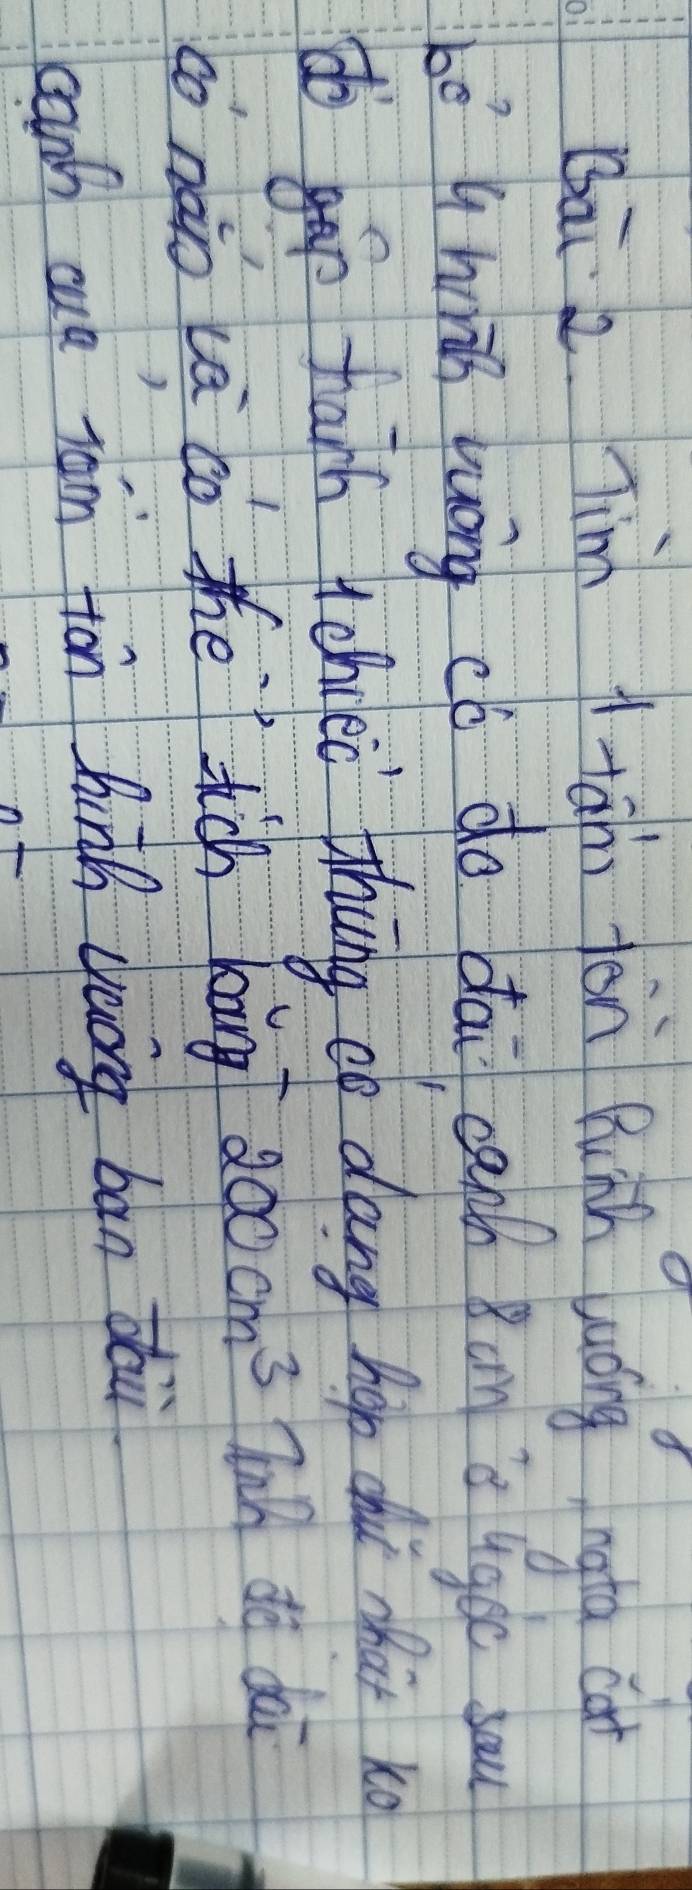 Bài 2. Từ 1 tấm tôn hình vuông, ngta cắt
bỏ 4 hình vuông có độ dài cạnh 8 cm ở 4 góc sau
đó gấp thành 1 chiếc thùng có dạng hộp chữ nhật ko
có nắp và có thể tích bằng 200 cm³ Tính độ dài
cạnh của tấm tôn hình vuông ban đầu.